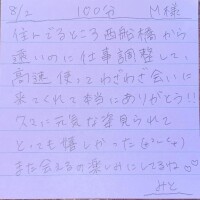 8/2 100分 M様
住んでるところ西船橋から
遠いのに仕事調整して、
高速使ってわざわざ会いに
来てくれて本当にありがとう!!
久々に元気な姿見られて
とっても嬉しかった(^^)
また会えるの楽しみにしてるね♡
みと